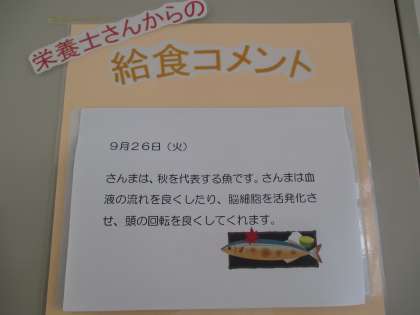 栄養士さんからの
給食コメント
９月２６日（火）
さんまは、秋を代表する魚です。さんまは血
液の流れを良くしたり、脳細胞を活発化さ
せ、頭の回転を良くしてくれます。